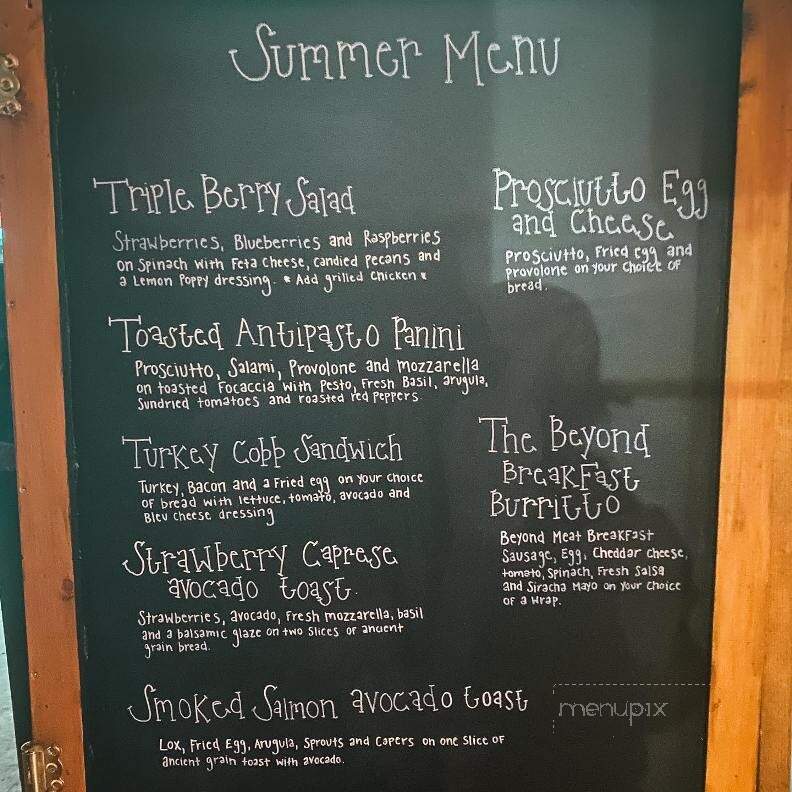 Summer Menu
Triple Berry Salad
Strawberries, Blueberries and Raspberries
on Spinach with Feta Cheese, candied pecans and
a Lemon Poppy dressing. * Add grilled Chicken *
Toasted Antipasto Panini
Prosciutto, Salami, Provolone and mozzarella
on toasted Focaccia with Pesto, Fresh Basil, arugula,
Sundried tomatoes and roasted red Peppers.
Turkey Cobb Sandwich
Turkey, Bacon and a Fried egg on your choice
of bread with lettuce, tomato, avocado and
Bleu Cheese dressing
Strawberry Caprese
avocado toast.
Strawberries, avocado, Fresh mozzarella, basil
and a balsamic glaze on two slices of ancient
grain bread.
Smoked Salmon avocado toast
Lox, Fried Egg, Arugula, Sprouts and Capers on one Slice of
ancient grain toast with avocado.
Prosciutto Egg
and Cheese
Prosciutto, Fried egg and
provolone on your choice of
bread.
The Beyond
Breakfast
Burritto
Beyond Meat Breakfast
Sausage, Egg, Cheddar cheese,
tomato, Spinach, Fresh Salsa
and Siracha Mayo on your Choice
of a wrap.
menupix